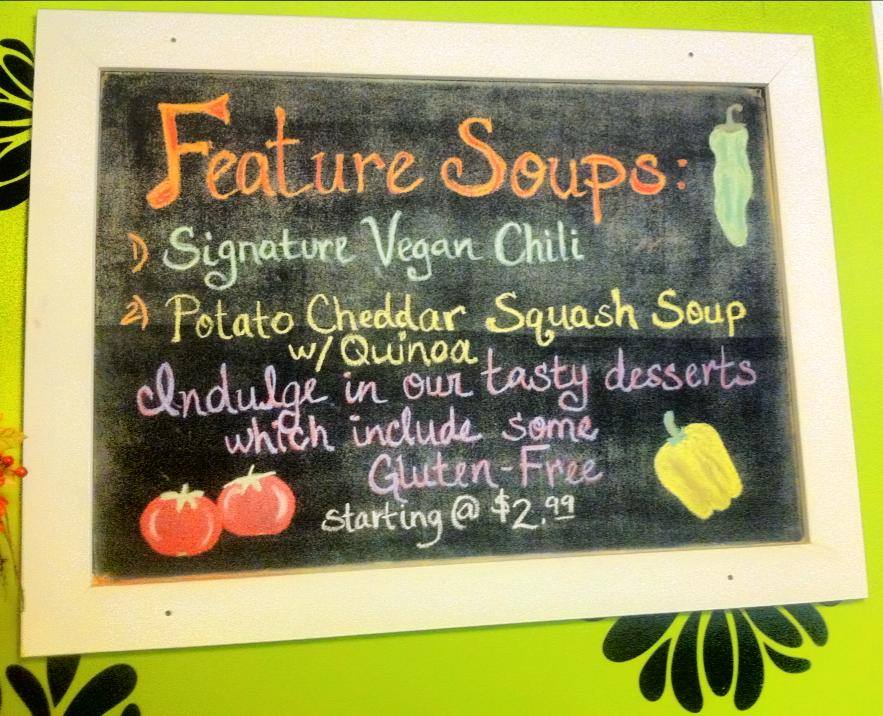 Feature Soups:
1) Signature Vegan Chili
2) Potato Cheddar Squash Soup
w/ Quinoa
Indulge in our tasty desserts
which include some
Gluten-Free
starting @ $2.99